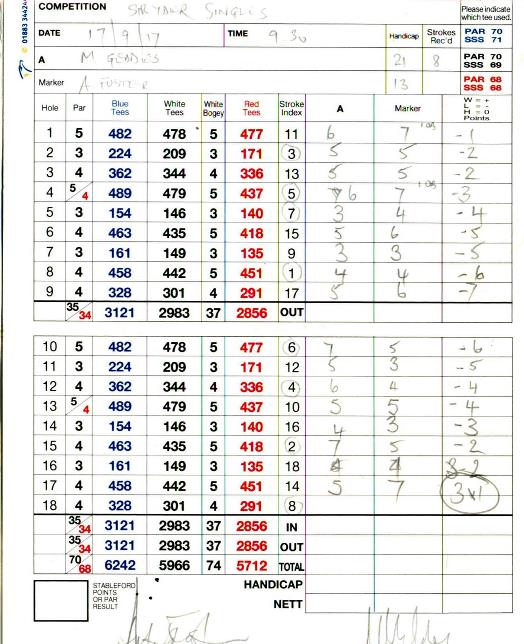 COMPETITION SATURDAY SINGLES
Please indicate which tee used.
01883 34424
DATE 17/9/17 TIME 9 30 Handicap Strokes Rec'd PAR 70 SSS 71
A M GEDDIES 21 8 PAR 70 SSS 69
Marker A FOSTER 13 PAR 68 SSS 68
Hole Par Blue Tees White Tees White Bogey Red Tees Stroke Index A Marker W = + L = - H = 0 Points
1 5 482 478 5 477 11 6 7 -1
2 3 224 209 3 171 3 5 5 -2
3 4 362 344 4 336 13 5 5 -2
4 5/4 489 479 5 437 5 6 7 -3
5 3 154 146 3 140 7 3 4 -4
6 4 463 435 5 418 15 5 6 -5
7 3 161 149 3 135 9 3 3 -5
8 4 458 442 5 451 1 4 4 -6
9 4 328 301 4 291 17 5 6 -7
35/34 3121 2983 37 2856 OUT
10 5 482 478 5 477 6 7 5 -6
11 3 224 209 3 171 12 5 3 -5
12 4 362 344 4 336 4 6 4 -4
13 5/4 489 479 5 437 10 5 5 -4
14 3 154 146 3 140 16 4 3 -3
15 4 463 435 5 418 2 7 5 -2
16 3 161 149 3 135 18 4 4 -2
17 4 458 442 5 451 14 5 7 3x1
18 4 328 301 4 291 8
35/34 3121 2983 37 2856 IN
35/34 3121 2983 37 2856 OUT
70/68 6242 5966 74 5712 TOTAL
STABLEFORD POINTS OR PAR RESULT
HANDICAP
NETT